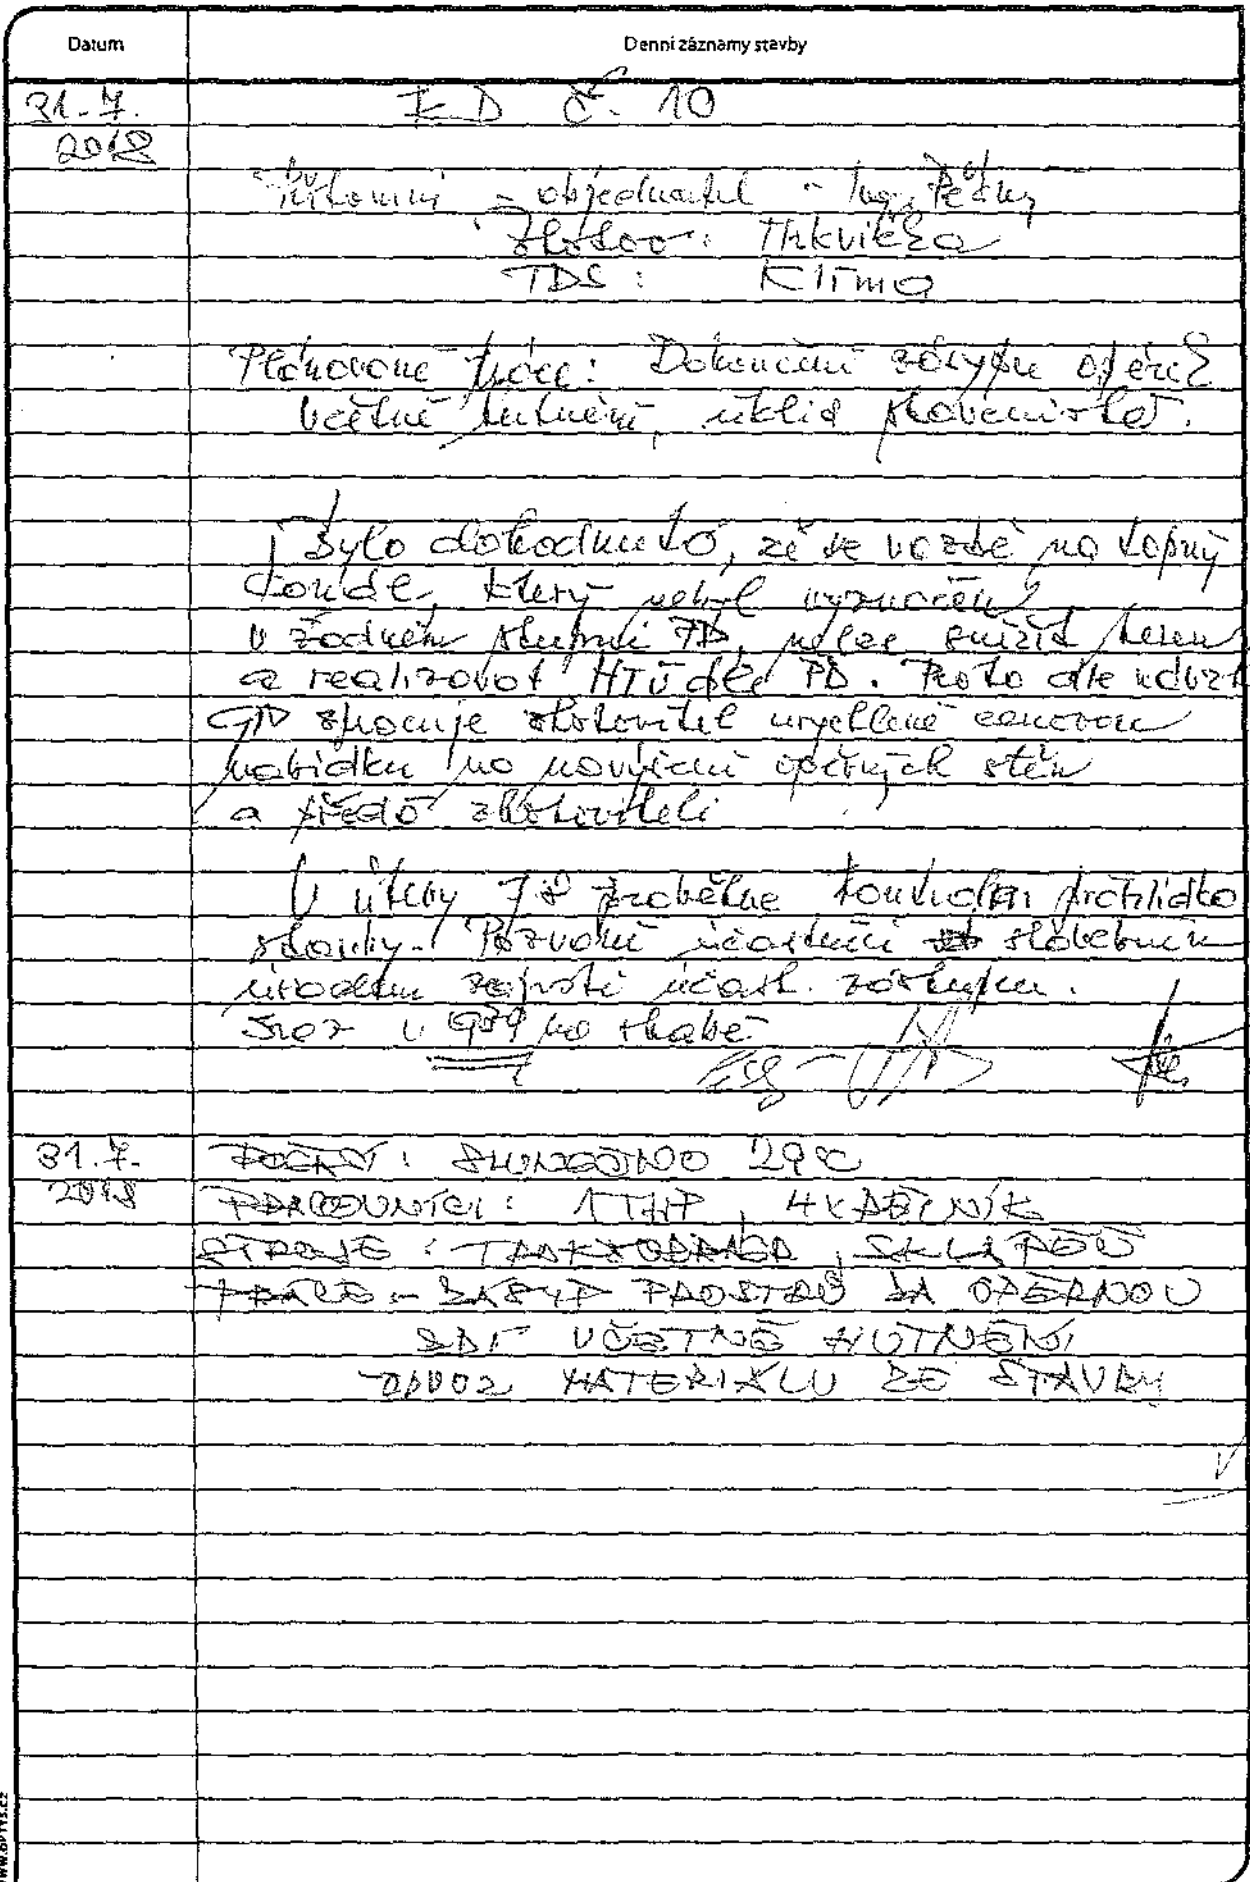 Datum
Denní záznamy stavby
31.7.
2018
KD č. 10
Přítomni - objednatel - Ing.
Zhotov: Mrkvička
TDS: Klíma
Plánované práce: Dokončení zásypu opěrné
včetně hutnění, úklid staveniště.
Bylo dohodnuto, že se vazbě na topný
kanál, který nebyl vyznačen
v žádném stupni PD, nelze snížit terén
a realizovat HTÚ dle PD. Proto dle
GD zpracuje zhotovitel urychleně cenovou
nabídku na navýšení opěrných stěn
a předá zhotoviteli
V úterý 7.8 proběhne kontrolní prohlídka
stavby. Pozvaní účastníci stavebním
úřadem zajistí účast. zástupců.
Sraz v na stavbě
31.7.
2018
POČASÍ: SLUNEČNO 29°C
PRACOVNÍCI: 1 THP, 4x DĚLNÍK
STROJE: TRAKTOROBAGR, SKLÁPĚČ
PRÁCE - ZÁSYP PROSTOR ZA OPĚRNOU
ZDÍ VČETNĚ HUTNĚNÍ
ODVOZ MATERIÁLU ZE STAVBY